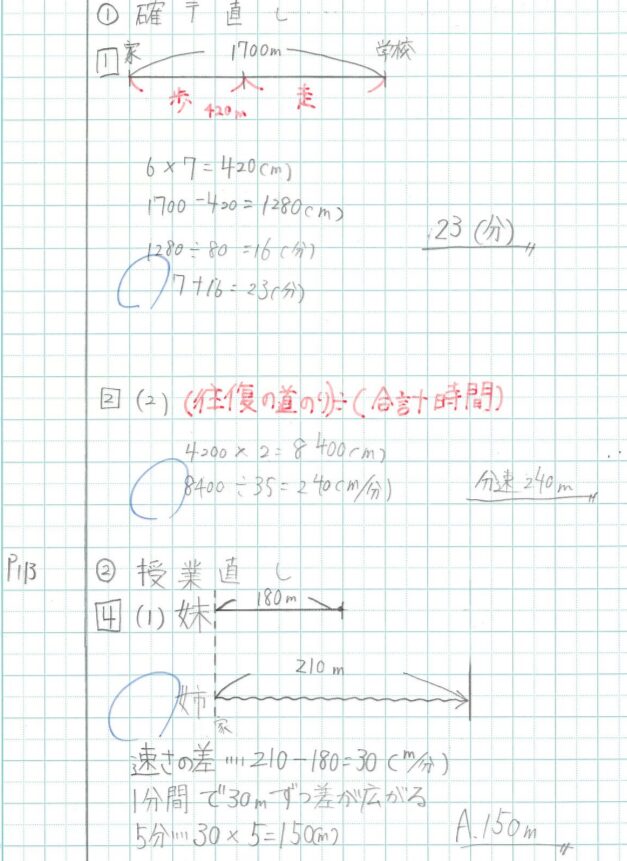 ① 確テ直し
1 家 1700m 学校
歩 420m 走
6×7=420(m)
1700-420=1280(m)
1280÷80=16(分)
7+16=23(分)
23(分)
2 (2) (往復の道のり)÷(合計時間)
4200×2=8400(m)
8400÷35=240(m/分)
分速240m
P113 ② 授業直し
4 (1) 妹 180m
210m
姉
家
速さの差…210-180=30(m/分)
1分間で30mずつ差が広がる
5分…30×5=150(m)
A.150m